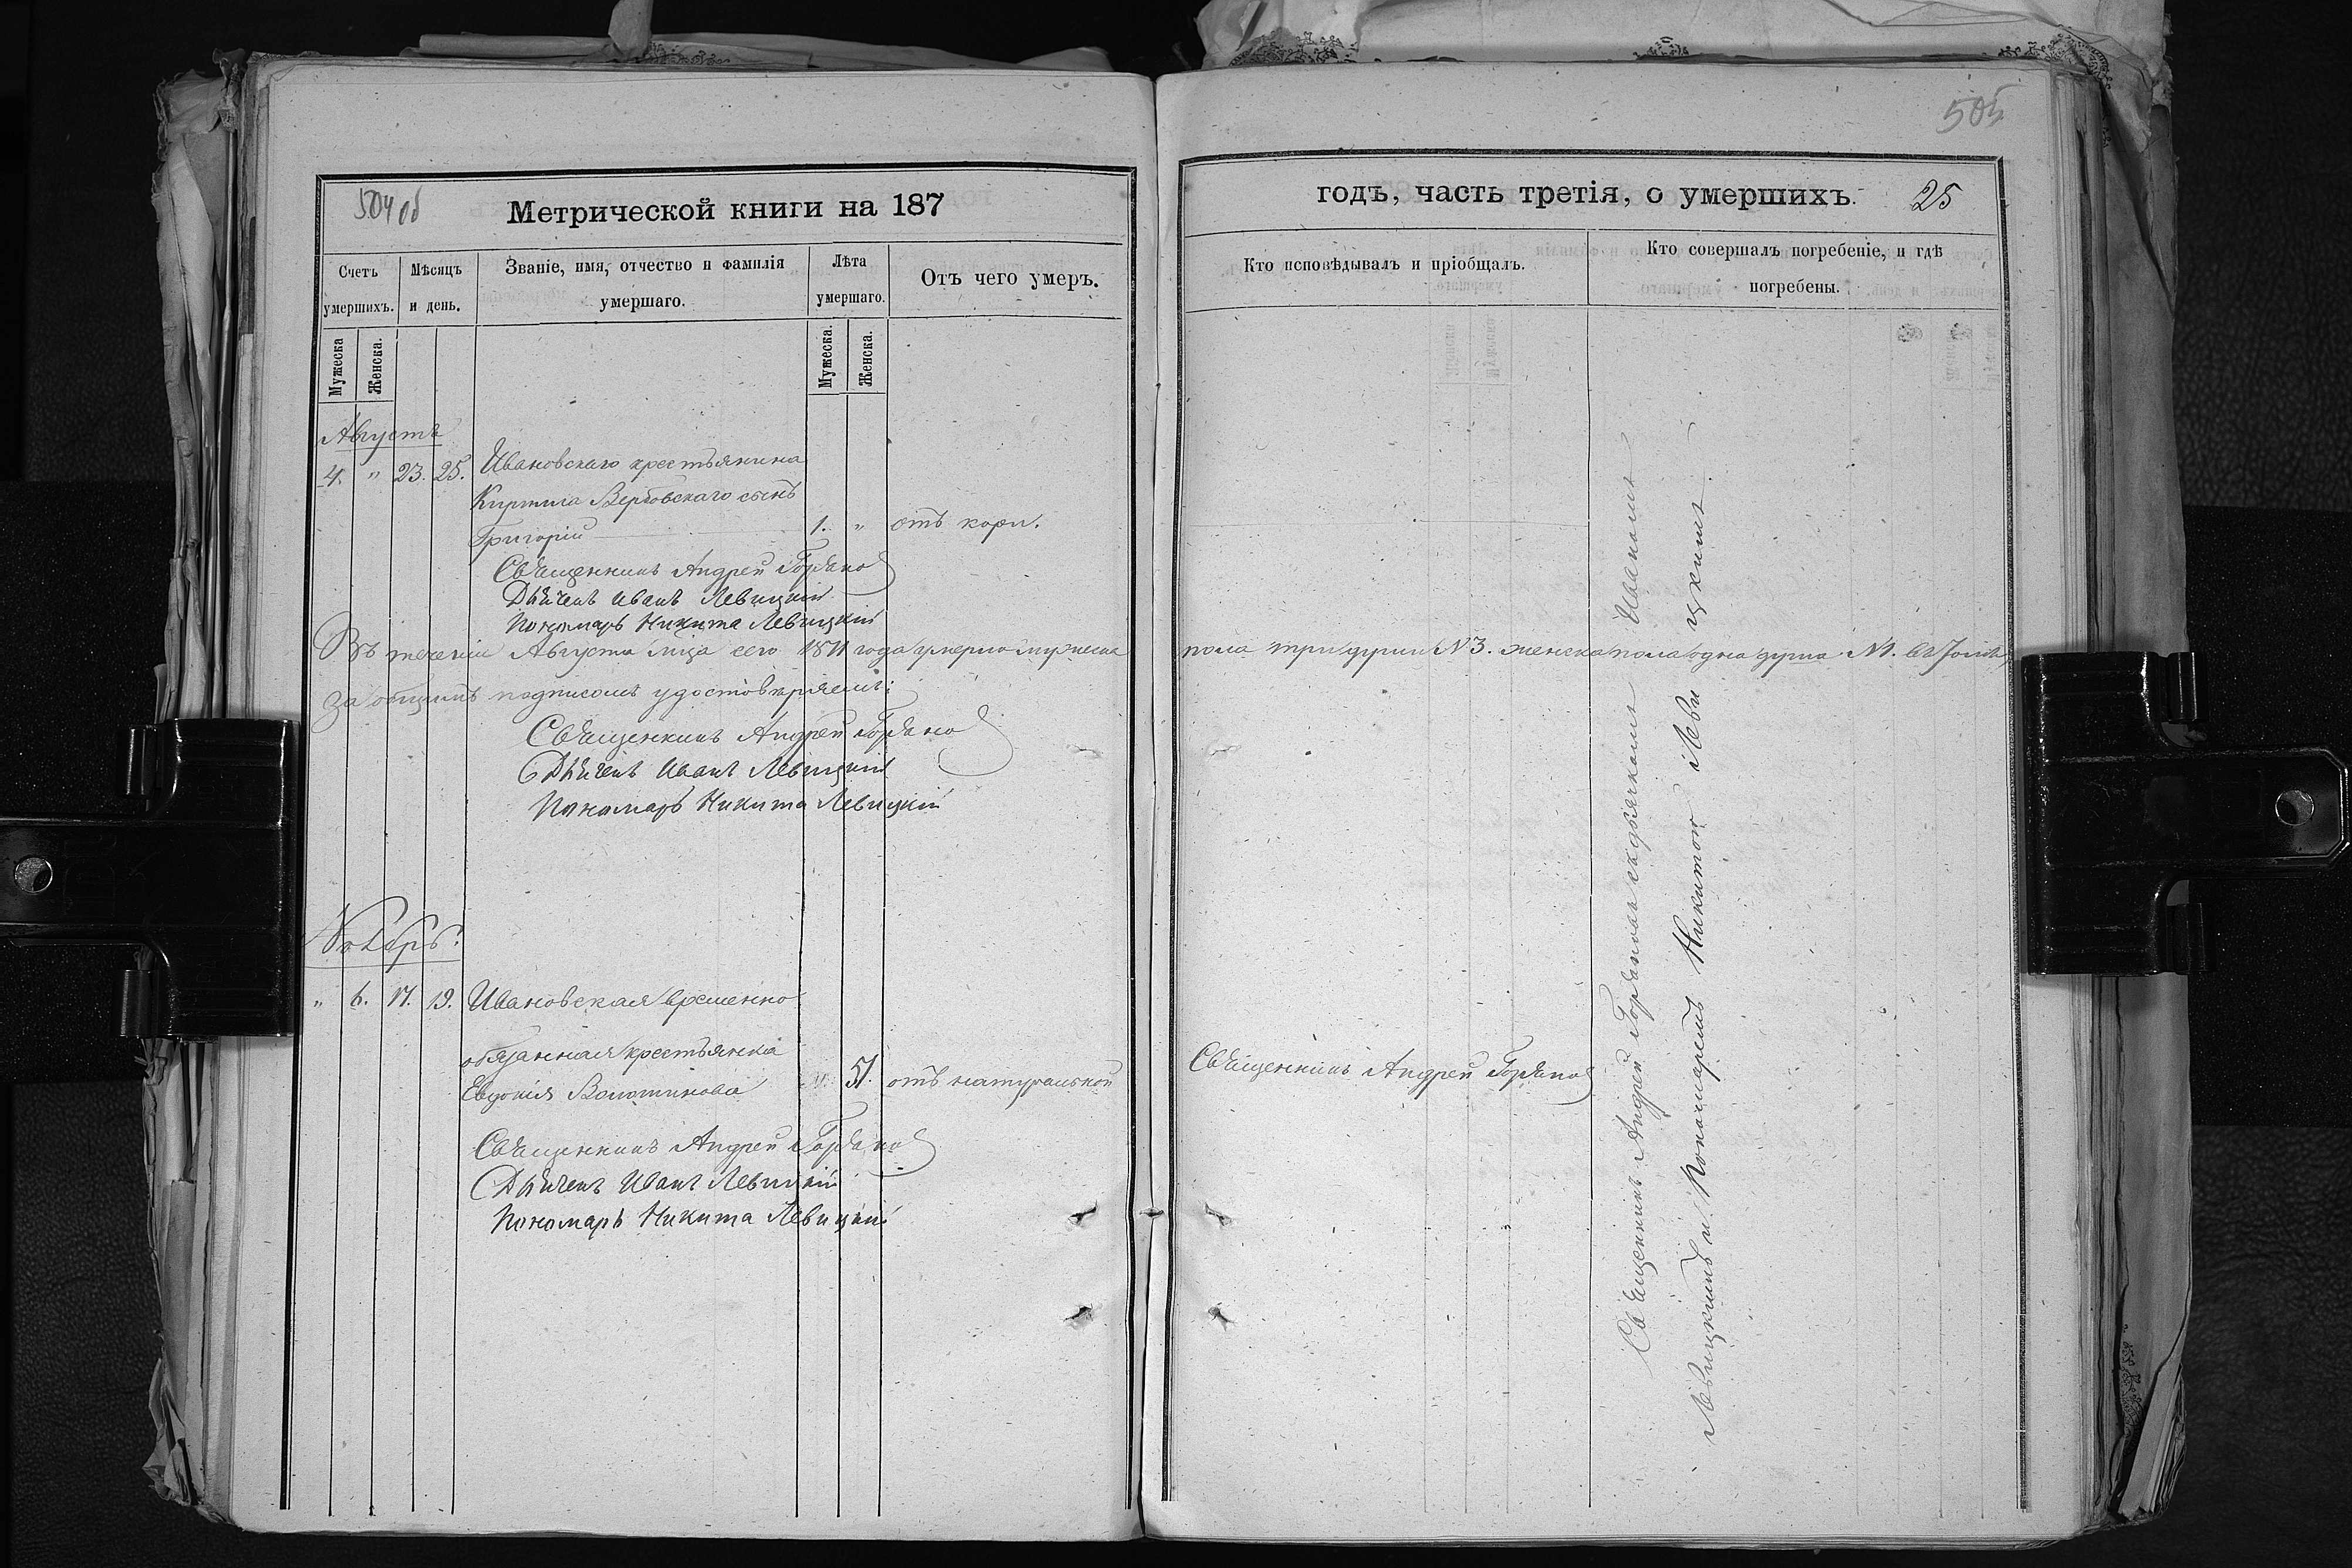 504 об
Метрической книги на 187
Счетъ умершихъ.
Мѣсяцъ и день.
Званіе, имя, отчество и фамилія умершаго.
Лѣта умершаго.
Отъ чего умеръ.
Мужеска
Женска.
Мужеска.
Женска.
Августъ
4. " 23. 25. Ивановскаго крестьянина
Кирила Вербовскаго сынъ
Григорій 1. " отъ кори.
Священникъ Андрей Горбано
Дьячекъ Иванъ Левицкій
Пономарь Никита Левицкій
Въ теченіи Августа мца сего 1871 года умерло мужеска
за общимъ подписомъ удостовѣряемъ:
Священникъ Андрей Горбано
Дьячекъ Иванъ Левицкій
Пономарь Никита Левицкій
Ноябрь.
" 6. 17. 19. Ивановская временно
обязанная крестьянка
Евдокія 51. отъ натуральной
Священникъ Андрей Горбано
Дьячекъ Иванъ Левицкій
Пономарь Никита Левицкій
505
годъ, часть третія, о умершихъ. 25
Кто исповѣдывалъ и пріобщалъ.
Кто совершалъ погребеніе, и гдѣ
погребены.
пола три души № 3. женска пола одна душа № 1. въ
Священникъ Андрей Горбано
Священникъ Андрей Горбановъ съ дьячкомъ Иваномъ
Левицкимъ и Пономаремъ Никитою Левицкимъ.